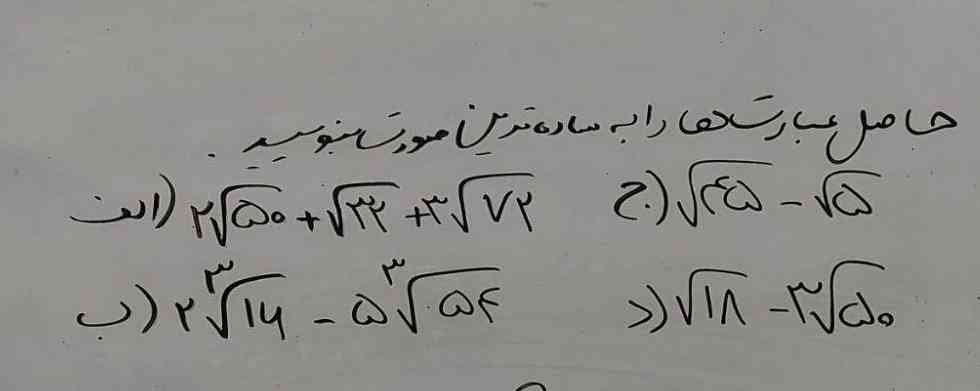 حاصل عبارت‌ها را به ساده‌ترین صورت بنویسید.
الف) ۲√۵۰ + √۳۲ + ۳√۷۲
ج) √۴۵ - √۵
ب) ۲∛۱۶ - ۵∛۵۴
د) √۱۸ - ۳√۵۰